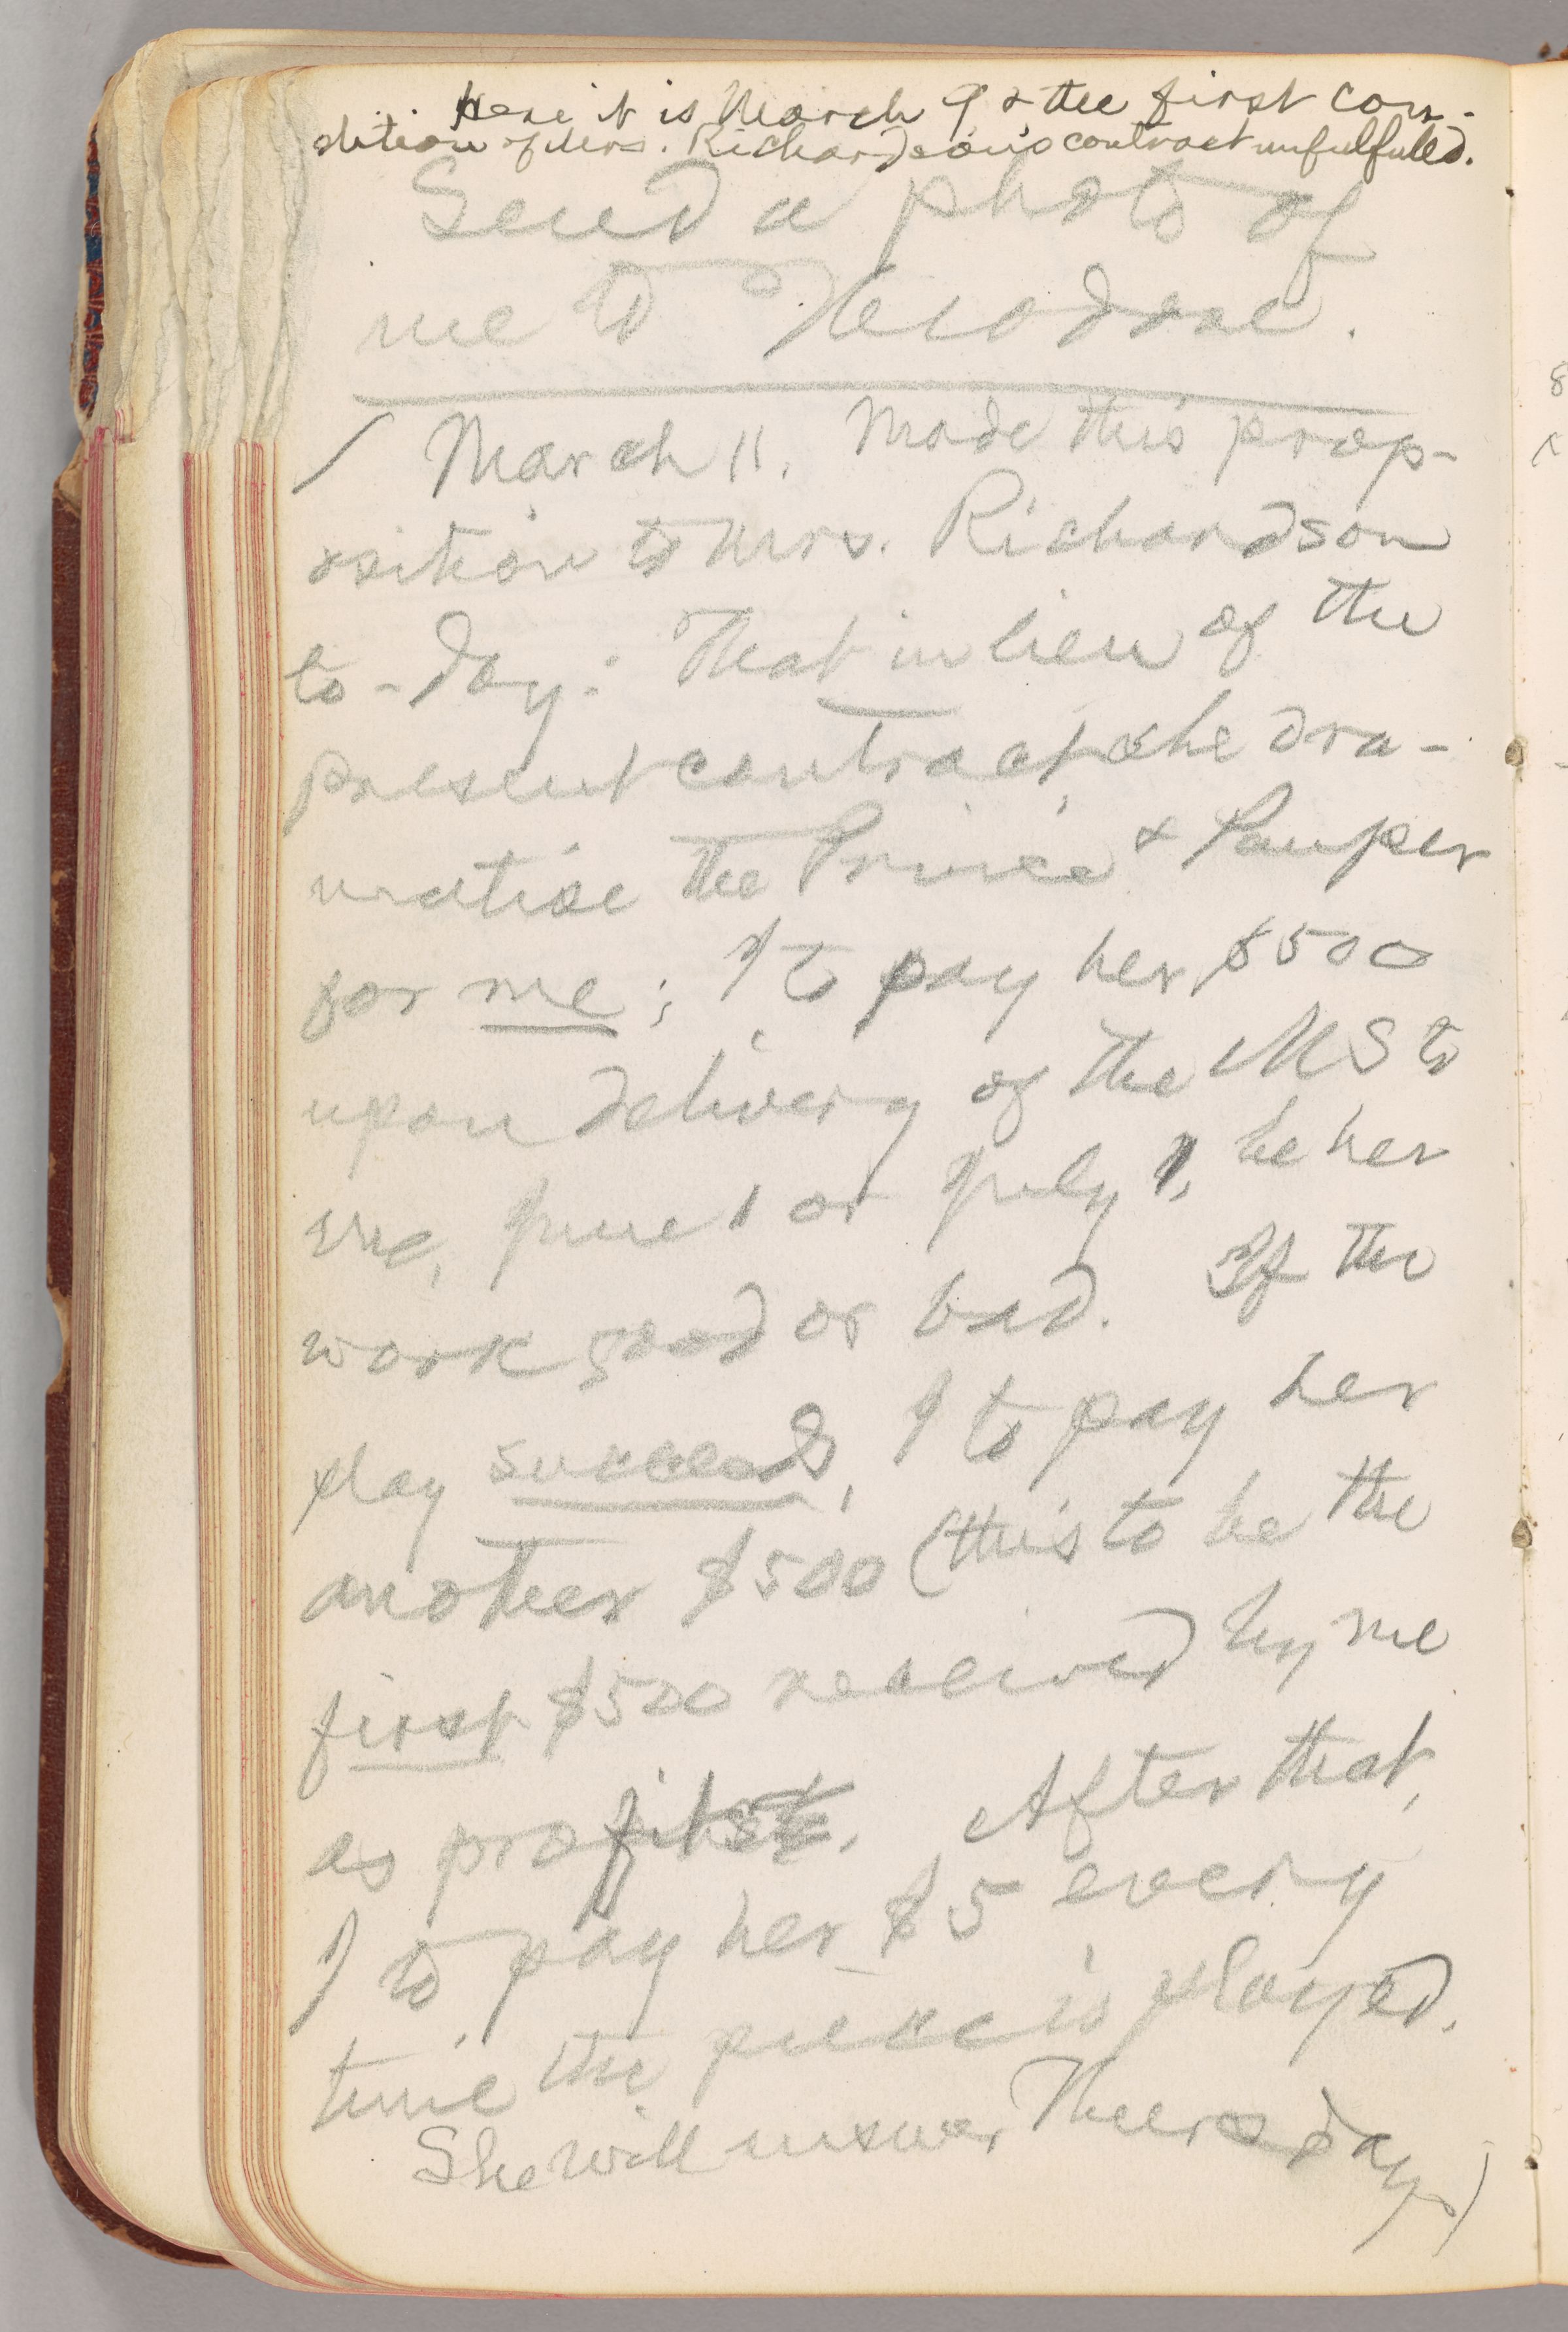 Here it is March 9 & the first con-
dition of Mrs. Richardson's contract unfulfilled.
Send a photo of
me to Theodore.
/ March 11. Made this prop-
osition to Mrs. Richardson
to-day: That in lieu of the
present contract, she dra-
matise the Prince & Pauper
for me; I to pay her $500
upon delivery of the MS to
me, June 1 or July 1, be her
work good or bad. If the
play succeeds, I to pay her
another $500 (this to be the
first $500 received by me
as profits. After that,
I to pay her $5 every
time the piece is played.
She will answer Thursday.)